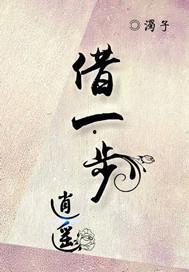 ◎ 濁子
借一步
逍遥